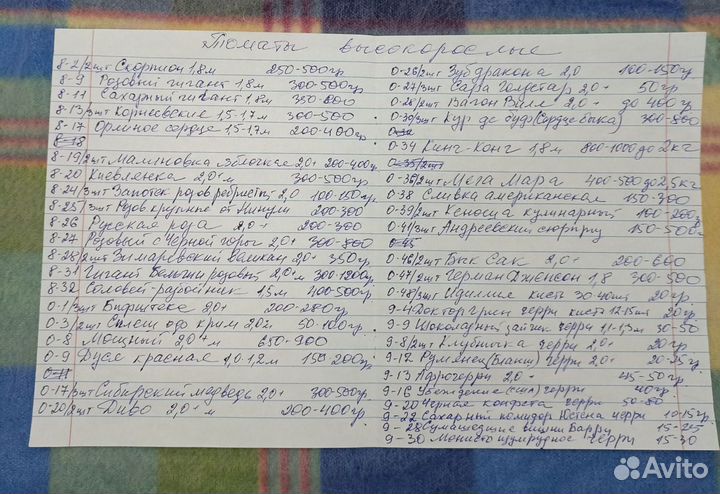 Томаты высокорослые
8-2/2шт Скорпион 1,8м 250-500гр
8-9 Розовый гигант 1,8м 300-500гр
8-11 Сахарный гигант 1,8м 350-600
8-13/3шт Корнеевские 1,5-17м 300-500
8-17 Орлиное сердце 1,5-17м 200-400гр
8-18
8-19/2шт Малиновка яблочкае 2,0+ 200-400гр
8-20 Киевлянка 2,0+м 300-500гр
8-24/3шт Запотек розов ребристый 2,0 100-150гр
8-25/3шт Розов крупные от Минули 200-300
8-26 Русская роза 2,0+ 200-300
8-27 Розовый с Черной горы 2,0+ 300-800
8-28/2шт Зимаревский великан 2,0+ 350гр
8-31 Гигант Бельгии розовый 2,0+м 300-1200гр
8-32 Соловей-разбойник 1,5м 400-500гр
0-1/3шт Бифштекс 2,0+ 200-280гр
0-3/2шт Сплеш оф крим 2,0+ 50-100гр
0-8 Мощный 2,0+м 650-900
0-9 Дуся красная 1,0-1,2м 150-200гр
0-11
0-17/3шт Сибирский медведь 2,0+ 300-500гр
0-20/2шт Диво 2,0+м 200-400гр
0-26/2шт Зуб дракона 2,0 100-150гр
0-27/3шт Сара Голдстар 2,0+ 50гр
0-28/2шт Вагон Вилл 2,0+ до 400гр
0-30/3шт Кур де буф (Сердце быка) 300-800
0-32
0-34 Кинг-Конг 1,8м 800-1000 до 2кг
0-35/2шт
0-36/2шт Мега Мара 400-500 до 2,5кг
0-38 Сливка американская 150-300
0-39/2шт Хеноста кулинарный 100-200г
0-41/3шт Андреевский сюрприз 150-500г
0-45
0-46/2шт Бык Сак 2,0+ 200-600
0-47/2шт Герман Дженсон 1,8 300-500
0-48/5шт Идиллия кисть 30 40шт 20гр
9-4 Доктор грин черри кисть 12-15шт 20гр
9-9 Шоколадный зайчик черри 1,1-1,3м 30-50
9-8/2шт Клубничка черри 2,0+ 20гр
9-12 Румянец (Бланш) черри 2,0+ 20-25гр
9-13 Афрочерри 2,0+ 45-50гр
9-16 Убеждение черри 40гр
9-20 Черная конфета черри 50-80
9-22 Сахарный помидор черри 10-15гр
9-28 Сумашедшие вишни Барри 15-25
9-30 Монисто изумрудное черри 15-30
Avito